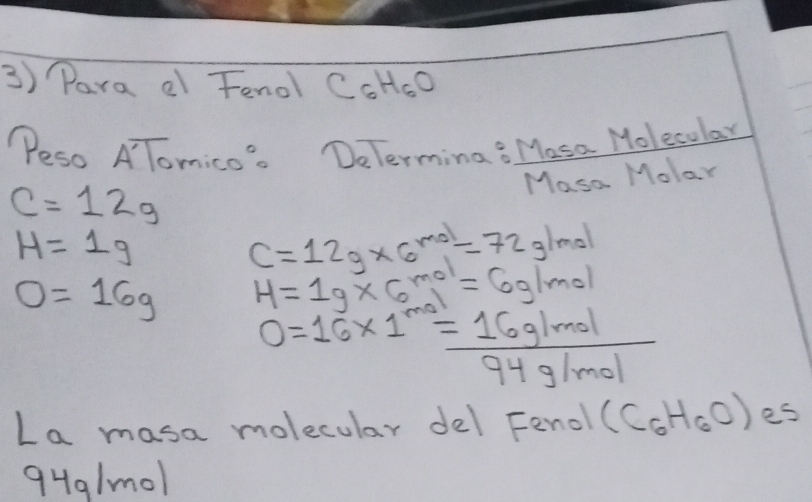 3) Para el Fenol C₆H₆O
Peso ATomico: DeTermina: Masa Molecular
Masa Molar
C = 12g
H = 1g
O = 16g
C = 12g x 6 mol = 72 g/mol
H = 1g x 6 mol = 6g/mol
O = 16 x 1 mol = 16g/mol
94 g/mol
La masa molecular del Fenol (C₆H₆O) es
94g/mol